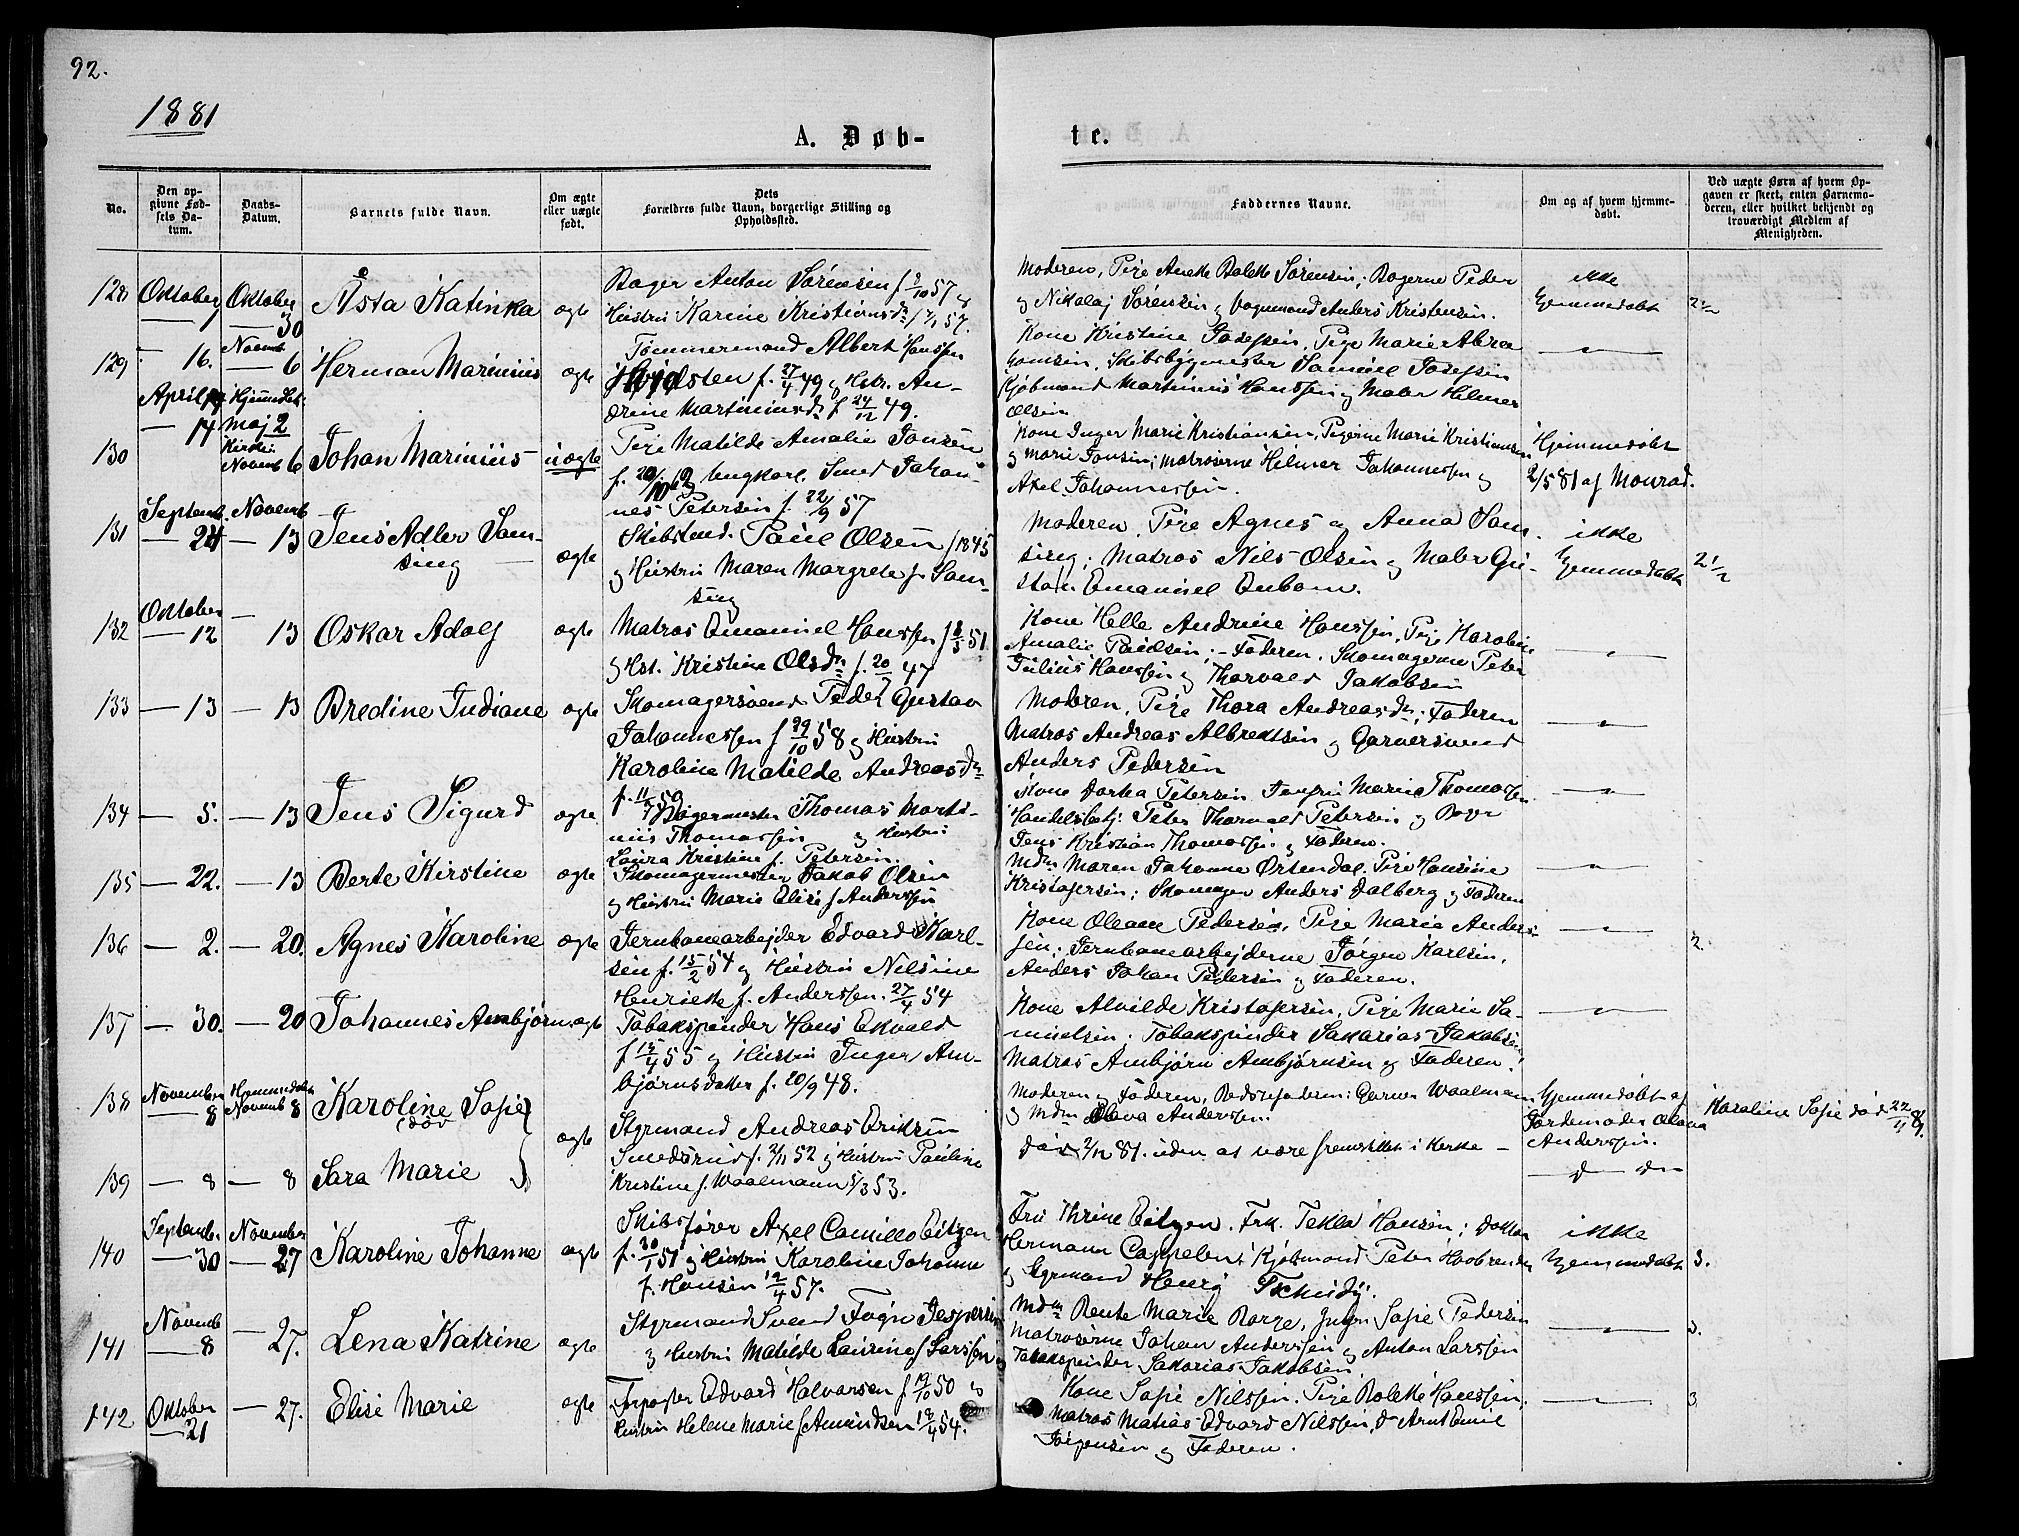 92.
1881
A. Døb-
te.
No.
Den op-
givne Fød-
sels Da-
tum.
Daabs-
Datum.
Barnets fulde Navn.
Om ægte
eller uægte
født.
Dets
Forældres fulde Navn, borgerlige Stilling og
Opholdssted.
Faddernes Navne.
Om og af hvem hjemme-
døbt.
Ved uægte Børn af hvem Op-
gaven er skeet, enten Barnemo-
deren, eller hvilket bekjendt og
troværdigt Medlem af
Menigheden.
128 Oktober 7 Oktober 30 Åsta Katinka ægte
Bager Anton Sörensen f 2/10 57 og
Hustru Karine Kristiansdr. 57.
Moderen, Pige Anette Bolette Sörensen; Bagerne Peder
og Nikolaj Sörensen og Vognmand Anders Kristensen.
ikke
hjemmedøbt 2 1/2
129 — 16. Novemb 6 Herman Marinius ægte
Tömmermand Albert Hansen
f. 27/4 49 og Hstr. An-
drine Martiniusdr f 24/12 49.
Kone Kristine Josefsen, Pige Marie Abra
hamsen, Skibsbygmester Samuel Josefsen
Kjöbmand Martinius Hanssen og Maler Hilmer
Olsen
130 April 14 Hjemmedøbt Maj 2
Kirken
Novemb 6 Johan Marinius uægte
Pige Matilde Amalie Jonsen
f. Ungkarl. Smed Johan-
nes Petersen f. 22/9 57
Kone Inger Marie Kristiansen, Pigerne Marie Kristiansen
og Marie Jonsen; Matroserne Hilmer Johannessen og
Axel Johannessen.
Hjemmedøbt
2/5 81 af Monrad.
131 Septemb. 24 Novemb 13 Jens Adler Sam-
sing ægte
Skibstmd. Paul Olsen f 1845
og Hustru Maren Margrete f. Sam-
sing
Moderen, Pige Agnes og Anna Sam-
sing; Matros Nils Olsen og Maler Gu-
stav Emanuel Enbom.
ikke
hjemmedøbt 2 1/2
132 Oktober 12 — 13 Oskar Adolf ægte
Matros Emanuel Hanssen f 51
og Hst. Kristine Olsdr f. 20/ 47
Kone Helle Andrine Hanssen, Pige Karoline
Amalie Paulsen; Faderen, Skomagerne Peter
Julius Hanssen og Thorvald Jakobsen
133 — 13 — 13 Bredine Indiane ægte
Skomagersvend Peder Gustav
Johannessen f 29/10 58 og Hustru
Karoline Matilde Andreasdr
f. 11/7 59
Moderen, Pige Thora Andreasdr; Faderen
Matros Andreas Albrektsen og Garversvend
Anders Pedersen
134 — 5. — 13 Jens Sigurd ægte
Bagermester Thomas Marti-
nius Thomassen og Hustru
Laura Kristine f. Petersen.
Kone Dortea Petersen Jomfru Marie Thomassen
Handelsbetj. Peter Thorvald Petersen og Bager
Jens Kristian Thomassen og Faderen.
135 — 22. — 13 Berte Kirstine ægte
Skomagermester Jakob Olsen
og Hustru Marie Elise f Anderssen
Mdm Maren Johanne Ørtendal. Pige Hansine
Kristofersen; Skomager Anders Dalberg og Faderen
136 — 2. — 20. Agnes Karoline ægte
Jernbanearbejder Edvard Karl-
sen f. 15/2 54 og Hustru Nilsine
Henriette f. Anderssen. 27/4 54
Kone Oleane Pedersen, Pige Marie Anders-
sen; Jernbanearbejderne Jørgen Karlsen,
Anders Johan Pedersen og Faderen.
2
137 — 30. — 20 Johannes Ambjørn ægte
Tobakspinder Hans Ekvald
f 15/4 55 og Hustru Inger Am-
bjørnsdatter f. 20/9 48.
Kone Alvilde Kristofersen, Pige Marie Sa-
muelsen. Tobakspinder Sakarias Jakobsen,
Matros Ambjørn Ambjørnsen og Faderen.
138 November 8 Hjemmedøbt
Novemb 8 Karoline Sofie
död
ægte
Styrmand Andreas Eriksen
Smedsrud f. 2/11 52 og Hustru Pauline
Kristine f. Waalmann 5/3 53.
Moderen og Faderen, Bedstefaderen: Garver Waalmann
og Mdm Olava Anderssen.
Hjemmedøbt af
Jordemoder Olava
Anderssen.
Karoline Sofie död 22/11 81.
139 — 8 — 8 Sara Marie
död 2/12 81. uden at være fremstillet i Kirke —
d— do—
140 Septemb. 30 November 27 Karoline Johanne ægte
Skibsfører Axel Camillo Eitzen
f. 30/1 51 og Hustru Karoline Johanne
f. Hansen 12/4 57.
Fru Thrine Eitzen. Frk. Tekla Hansen; Doktor
Hermann Cappelen, Kjøbmand Peter
og Styrmand Henry Tschudy.
ikke
hjemmedøbt 3.
141 Novemb 8 — 27. Lena Katrine ægte
Styrmand Svend Foyn Jespersen
og Hustru Matilde Laurine f Larssen
Mdm Bente Marie Borge, Jmfr Sofie Pedersen
Matroserne Johan Anderssen og Anton Larssen
Tobakspinder Sakarias Jakobsen
3.
142 Oktober 21 — 27. Elise Marie ægte
Forpagter Edvard Halvorsen f 19/10 50 og
Hustru Helene Marie f Amundsen 18/4 54.
Kone Sofie Nilssen. Pige Bolette Hanssen,
Matros Matias Edvard Nilssen, do Arnt Emil
Jörgensen og Faderen.
3